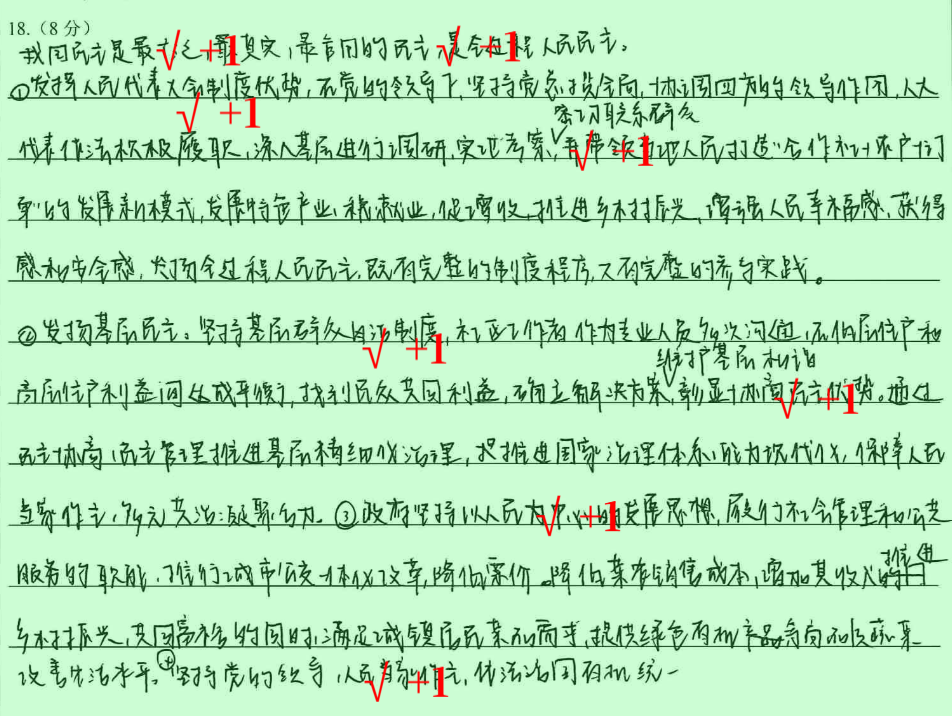 18.(8分)
我国民主是最广泛、最真实、最管用的民主,是全过程人民民主。
①发挥人民代表大会制度优势,在党的领导下,坚持党总揽全局,协调四方的领导作用,人大
密切联系群众
代表依法积极履职,深入基层进行调研,实地考察,并带领当地人民打造"合作社+农户+订
单"的发展新模式,发展特色产业、稳就业,促增收,推进乡村振兴,增强人民幸福感、获得
感和安全感,发扬全过程人民民主,既有完整的制度程序,又有完整的参与实践。
②发扬基层民主。坚持基层群众自治制度,社区工作者作为专业人员多次沟通,在低层住户和
维护基层和谐
高层住户利益间达成平衡,找到民众共同利益,确立解决方案,彰显协商民主优势。通过
民主协商、民主管理推进基层精细化治理,提推进国家治理体系、能力现代化,保障人民
当家作主,多元共治凝聚合力。③政府坚持以人民为中心的发展思想,履行社会管理和公共
推进
服务的职能,推行城市公交一体化改革,降低票价。降低菜农销售成本,增加其收入的同
乡村振兴,共同富裕的同时,满足城镇居民菜的需求,提供绿色有机产品
改善生活水平。④坚持党的领导、人民当家作主,依法治国有机统一
√ +1
√ +1
√ +1
√ +1
√ +1
√ +1
√ +1
√ +1